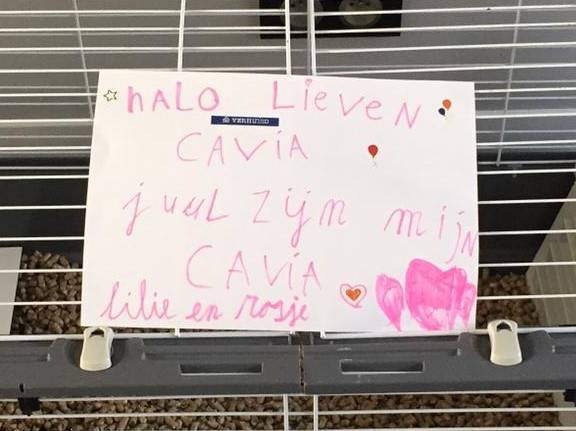 hALO LiEVEN
VERHUISD
CAViA
juuL zijn mijN
CAViA
lilie en rosje